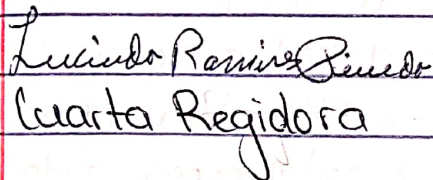 Lucinda Ramirez Pinedo
Cuarta Regidora